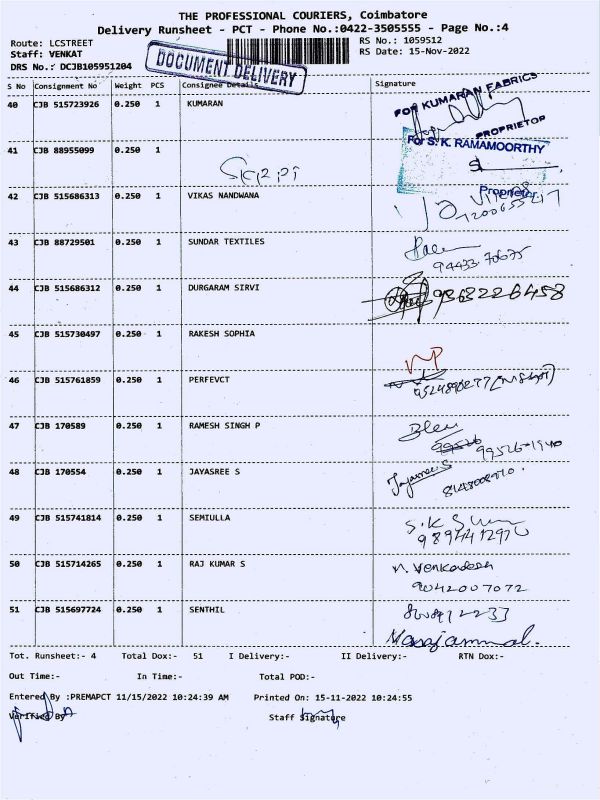 THE PROFESSIONAL COURIERS, Coimbatore
Delivery Runsheet - PCT - Phone No.:0422-3505555 - Page No.:4
Route: LCSTREET RS No.: 1059512
Staff: VENKAT RS Date: 15-Nov-2022
DRS No.: DCJB105951204
DOCUMENT DELIVERY
S No Consignment No Weight PCS Consignee Details Signature
40 CJB 515723926 0.250 1 KUMARAN
FOR KUMARAN FABRICS
PROPRIETOR
41 CJB 88955099 0.250 1
For S. K. RAMAMOORTHY
Proprietor
42 CJB 515686313 0.250 1 VIKAS NANDWANA
43 CJB 88729501 0.250 1 SUNDAR TEXTILES
94433 70675
44 CJB 515686312 0.250 1 DURGARAM SIRVI
9363226458
45 CJB 515730497 0.250 1 RAKESH SOPHIA
46 CJB 515761859 0.250 1 PERFEVCT
47 CJB 170589 0.250 1 RAMESH SINGH P
48 CJB 170554 0.250 1 JAYASREE S
Jayasree S
49 CJB 515741814 0.250 1 SEMIULLA
50 CJB 515714265 0.250 1 RAJ KUMAR S
N. Venkadesh
9042007072
51 CJB 515697724 0.250 1 SENTHIL
Tot. Runsheet:- 4 Total Dox:- 51 I Delivery:- II Delivery:- RTN Dox:-
Out Time:- In Time:- Total POD:-
Entered By :PREMAPCT 11/15/2022 10:24:39 AM Printed On: 15-11-2022 10:24:55
Verified By Staff Signature